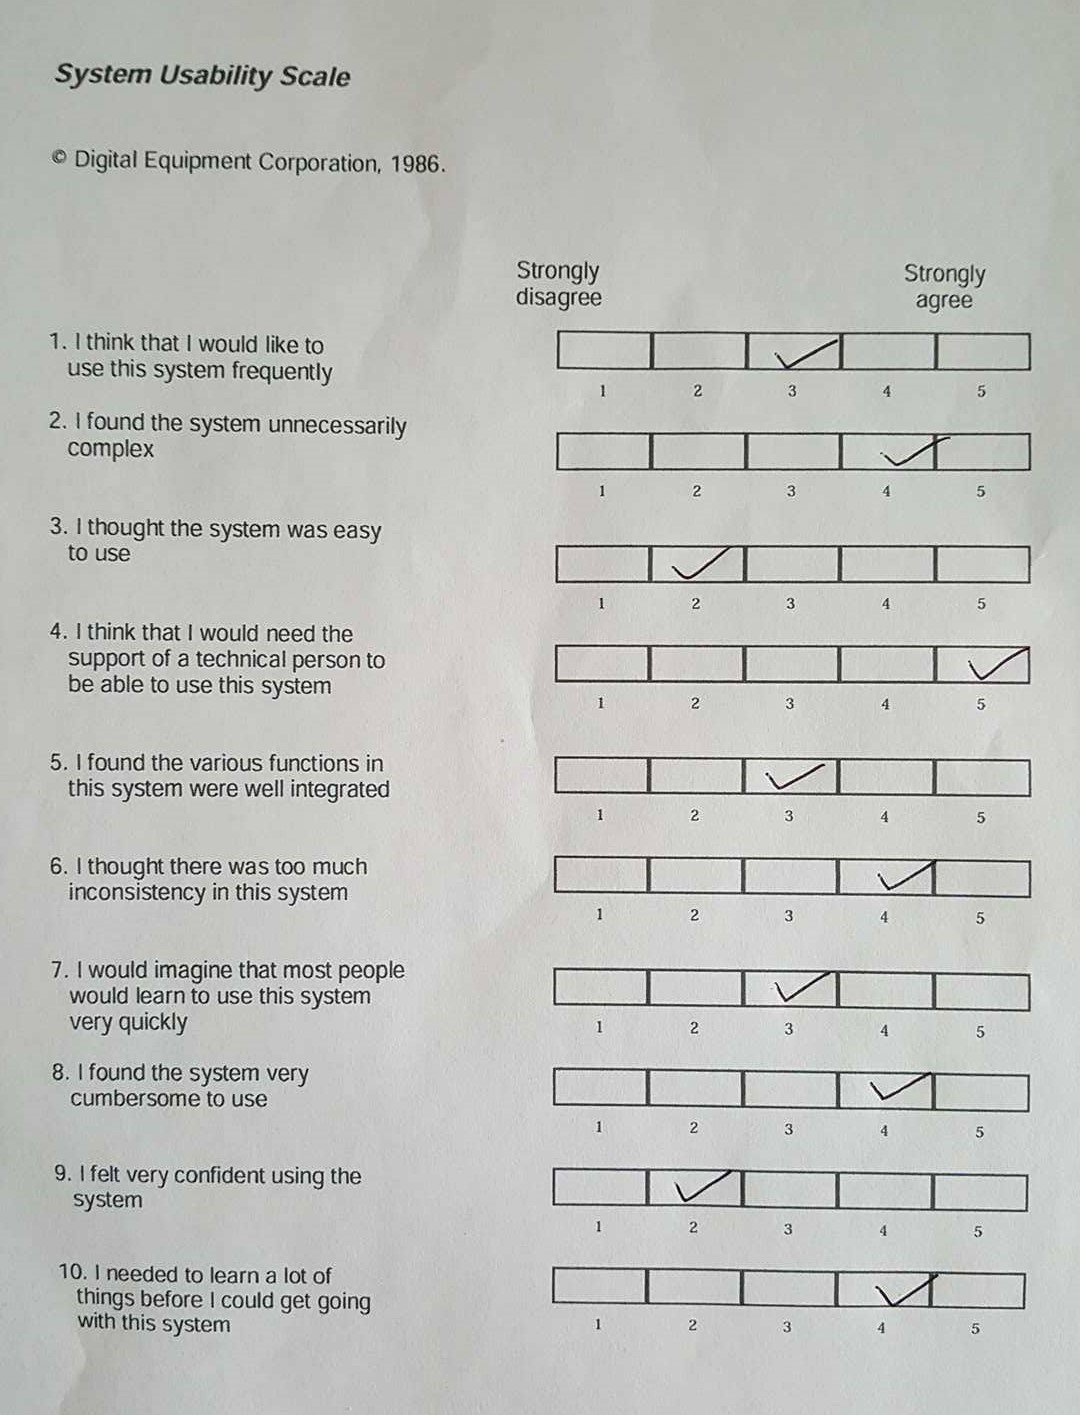 System Usability Scale
© Digital Equipment Corporation, 1986.
Strongly
disagree
Strongly
agree
1. I think that I would like to
use this system frequently
1 2 3 4 5
2. I found the system unnecessarily
complex
1 2 3 4 5
3. I thought the system was easy
to use
1 2 3 4 5
4. I think that I would need the
support of a technical person to
be able to use this system
1 2 3 4 5
5. I found the various functions in
this system were well integrated
1 2 3 4 5
6. I thought there was too much
inconsistency in this system
1 2 3 4 5
7. I would imagine that most people
would learn to use this system
very quickly
1 2 3 4 5
8. I found the system very
cumbersome to use
1 2 3 4 5
9. I felt very confident using the
system
1 2 3 4 5
10. I needed to learn a lot of
things before I could get going
with this system
1 2 3 4 5